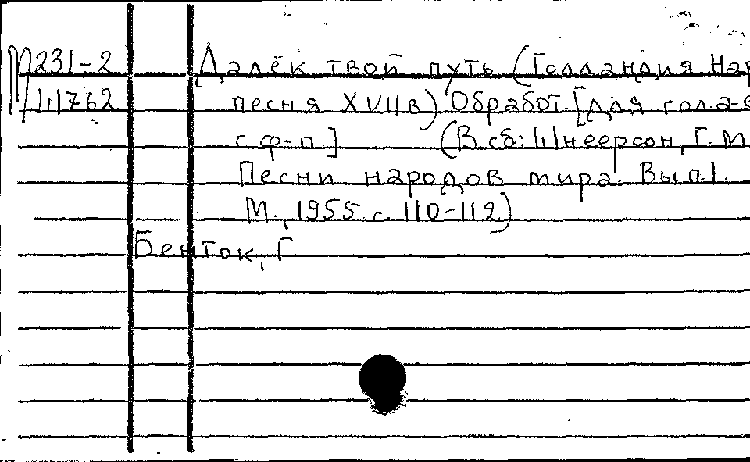 П231-2 Далёк твой путь (Голландия Нар
Ш762 песня XVIIв) Обработ. [для гол а-
с ф-п] (В сб: Шнеерсон, Г. М
Песни народов мира. Вып.1.
М., 1955 с. 110-112)
Бенток, Г